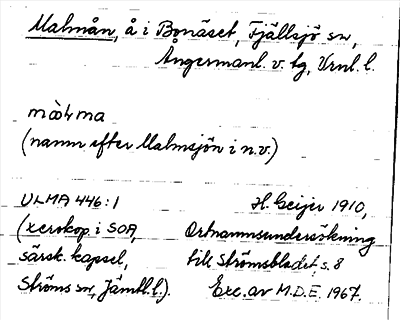 Malmån, å i Bonäset, Fjällsjö sn,
Ångermanl. v. tg, Vrnl. l.
mà4ma
(namn efter Malmsjön i n.v.)
ULMA 446:1 H. Geijer 1910,
(xerokop. i SOA, Ortnamnsundersökning
särsk. kapsel, till Strömsbladet, s. 8
Ströms sn, Jämtl. l.). Exc. av M.D.E. 1967.